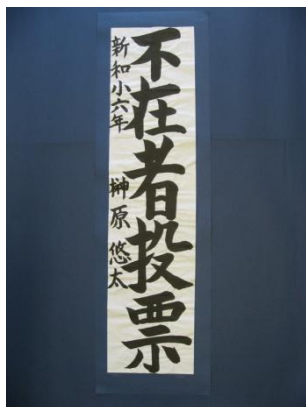 不在者投票
新和小六年 榊原悠太